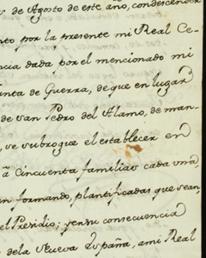 de Agosto de este año, condescender
por la presente mi Real Ce-
dada por el mencionado mi
nta de Guerra, de que en lugar
de San Pedro del Alamo, de man-
se subrogue el establecer en
á Cincuenta familias cada una
formando, plantificadas que sean,
el Presidio; y en su consecuencia
de la Nueva España, a mi Real